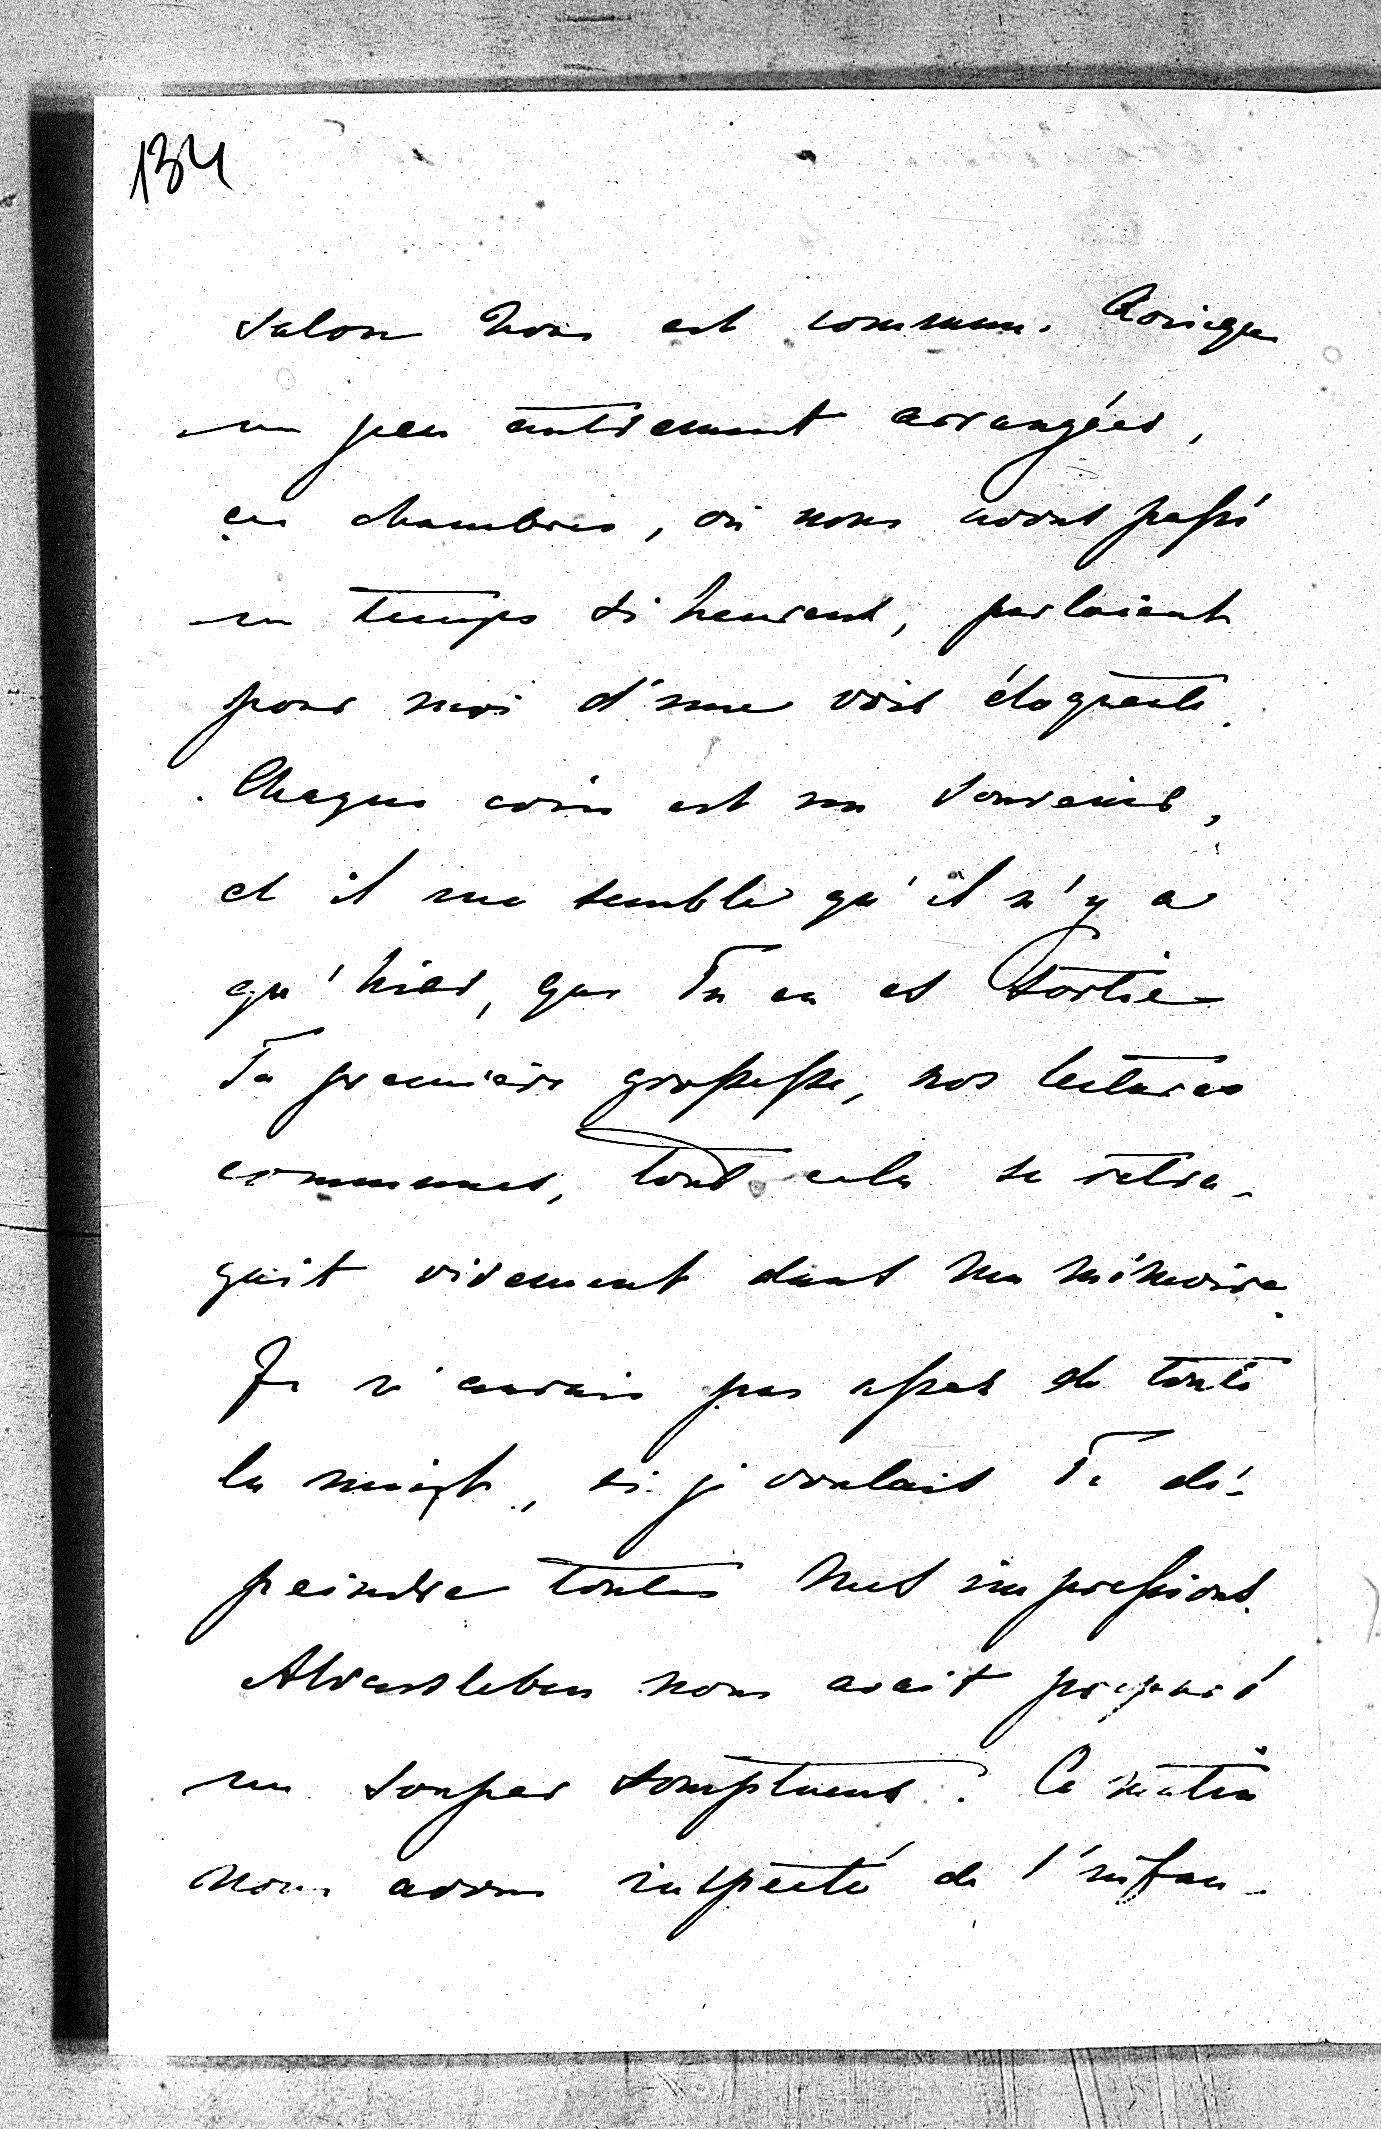 134
salon nous est commun. Quoique
un peu autrement arrangées,
ces chambres, où nous avons passé
un temps si heureux, parlaient
pour moi d'une voix éloquente.
Chaque coin est un souvenir,
et il me semble qu'il n'y a
qu'hier, que Tu en es sortie.
Ta première grossesse, nos lectures
communes, tout cela se retra-
çait vivement dans ma mémoire.
Je n'aurais pas assez de toute
la nuit, si je voulais Te dé-
peindre toutes mes impressions.
Alvensleben nous avait préparé
un souper somptueux. Ce matin
nous avons inspecté de l'infan-